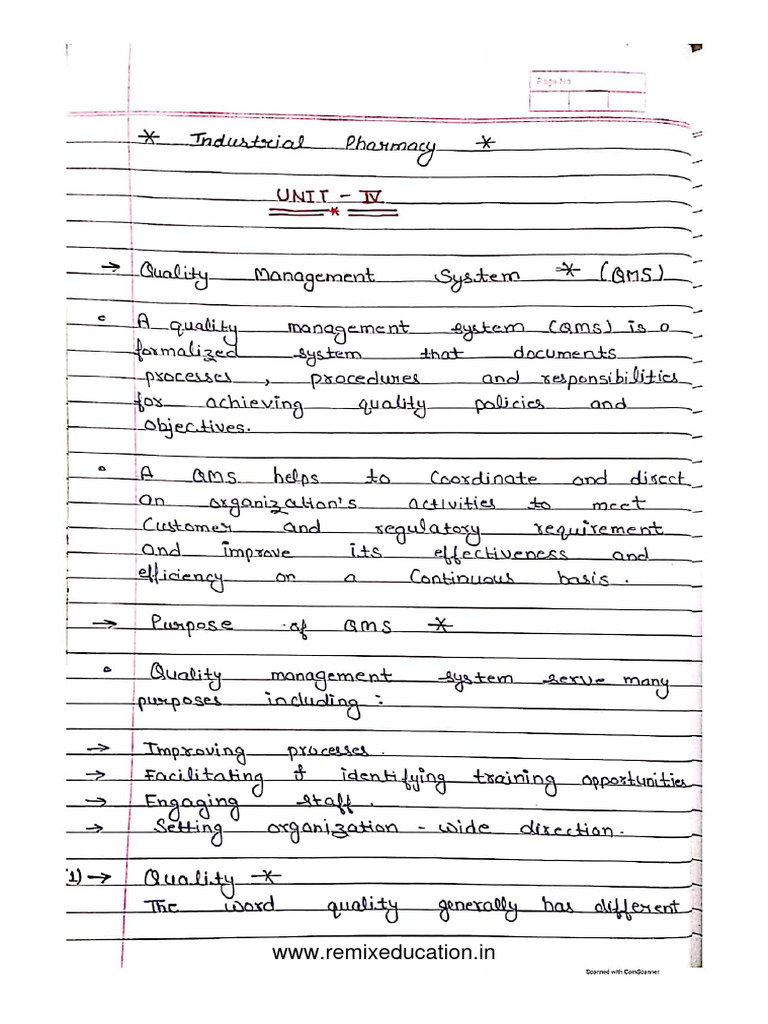 Page No.
* Industrial Pharmacy *
UNIT - IV
*
→ Quality Management System * (QMS)
° A quality management system (QMS) is a
formalized system that documents
processes, procedures and responsibilities
for achieving quality policies and
objectives.
° A QMS helps to coordinate and direct
an organization's activities to meet
Customer and regulatory requirement
and improve its effectiveness and
efficiency on a Continuous basis.
→ Purpose of QMS *
° Quality management system serve many
purposes including :
→ Improving processes.
→ Facilitating & identifying training opportunities
→ Engaging staff.
→ Setting organization - wide direction.
1) → Quality *
The word quality generally has different
www.remixeducation.in
Scanned with CamScanner